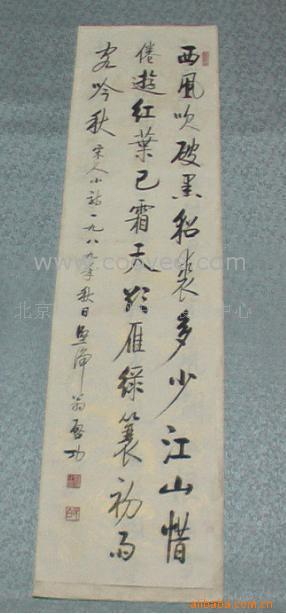 西風吹破黑貂裘多少江山惜
倦遊紅葉已霜天欲雁綠蓑初雨
客吟秋 宋人小詩一九八九年秋日堅淨翁啓功
北京
中心
alibaba.com.cn